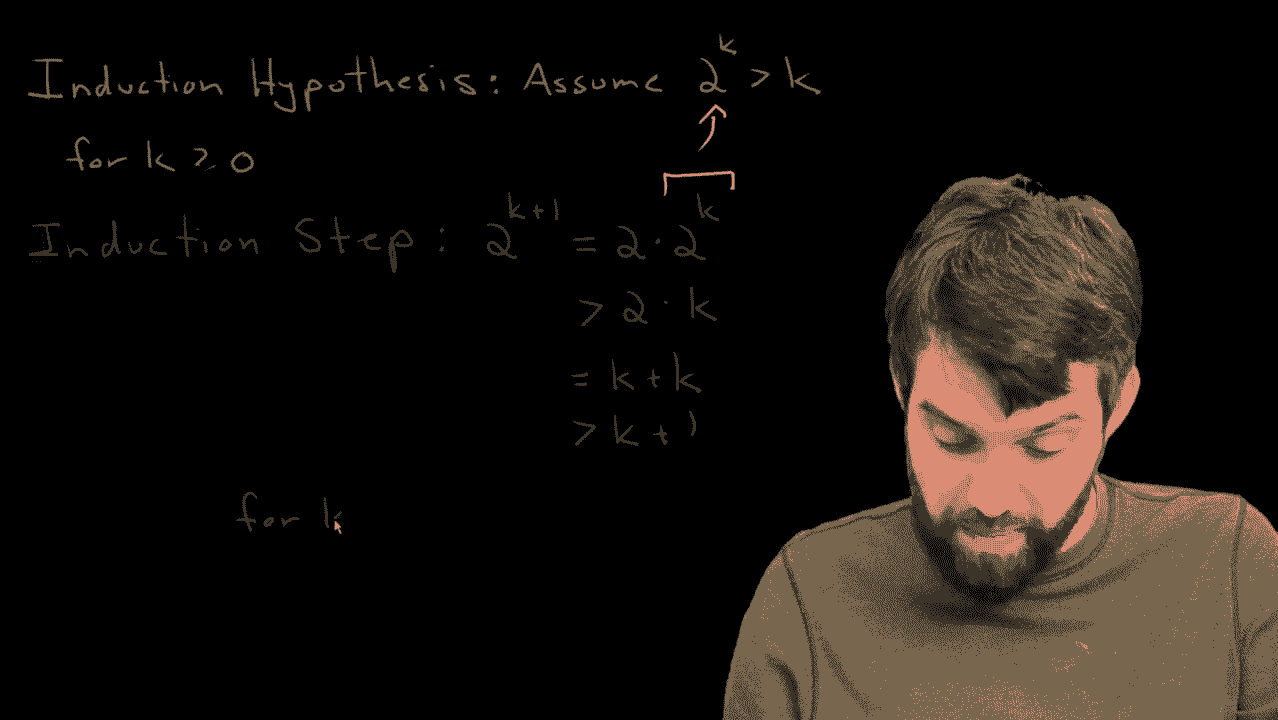 Induction Hypothesis: Assume 2^k > k
for k ≥ 0
Induction Step: 2^{k+1} = 2·2^k
> 2·k
= k+k
> k+1
for k